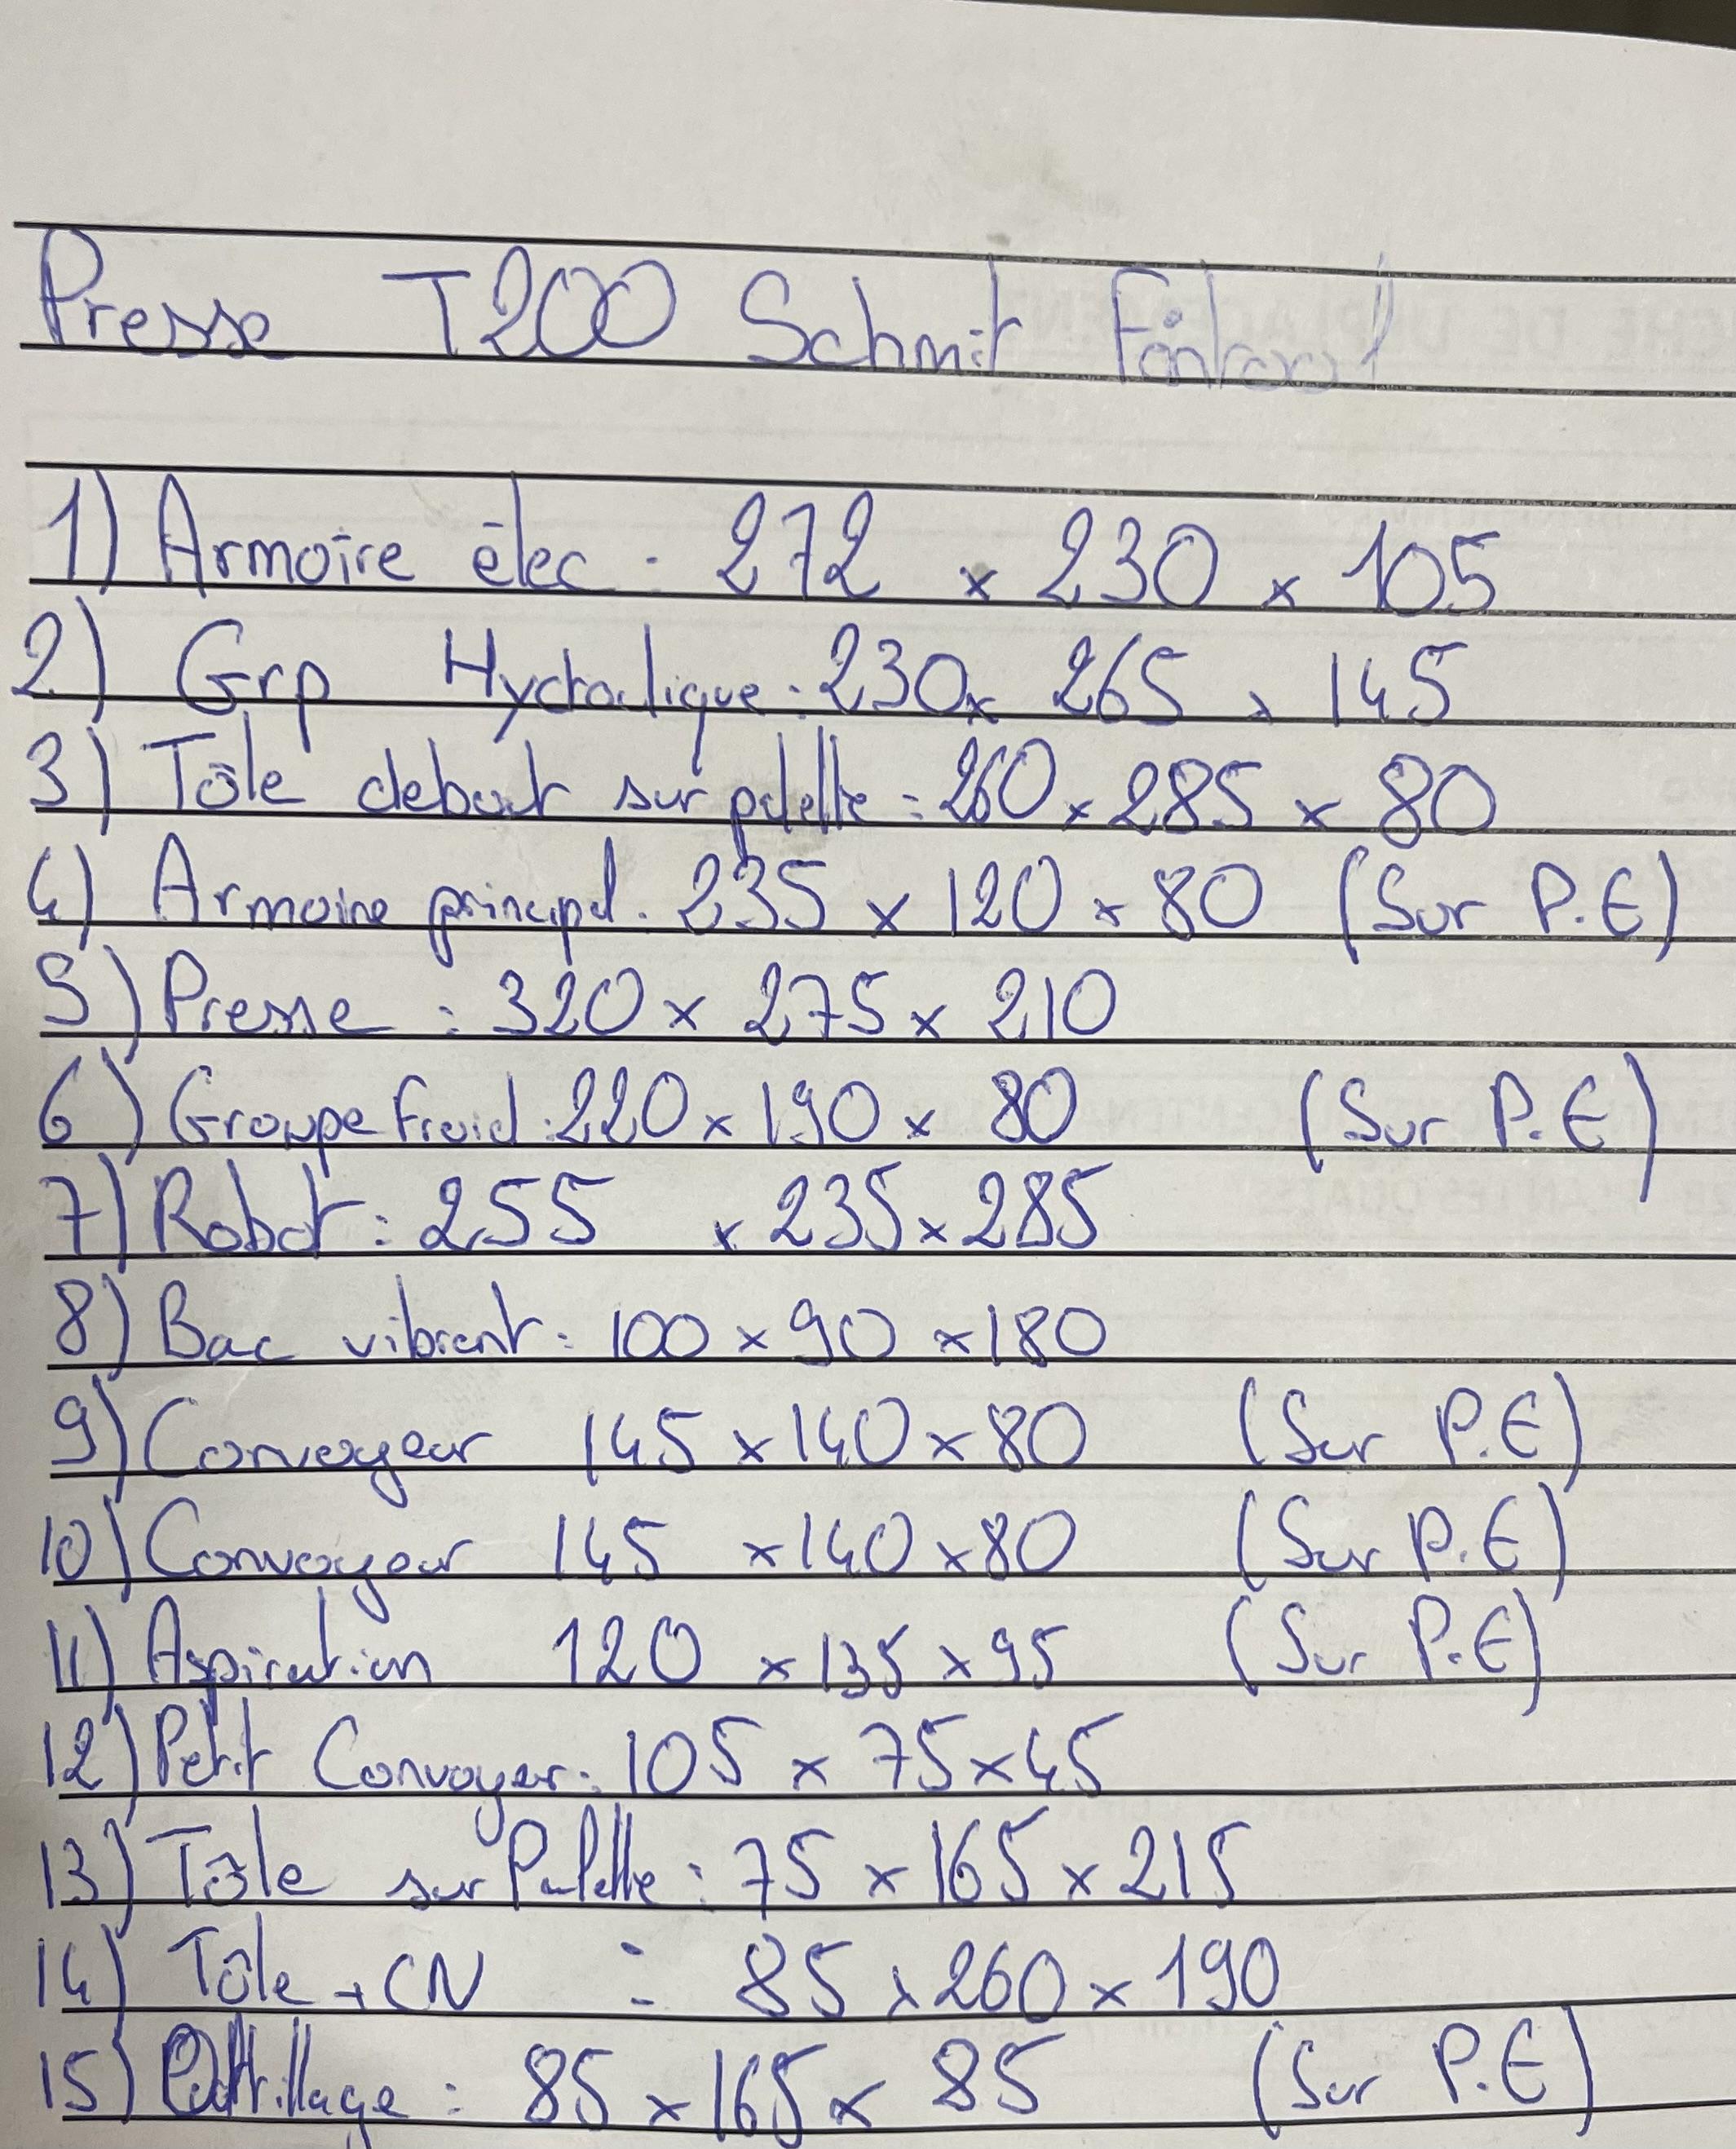 Presse T200 Schmit
1) Armoire élec : 272 x 230 x 105
2) Grp Hydraulique : 230 x 265 x 145
3) Tôle debout sur palette : 260 x 285 x 80
4) Armoire principal. 235 x 120 x 80 (Sur P.E)
5) Presse : 320 x 275 x 210
6) Groupe froid : 220 x 190 x 80 (Sur P.E)
7) Robot : 255 x 235 x 285
8) Bac vibrant : 100 x 90 x 180
9) Convoyeur 145 x 140 x 80 (Sur P.E)
10) Convoyeur 145 x 140 x 80 (Sur P.E)
11) Aspiration 120 x 135 x 95 (Sur P.E)
12) Petit Convoyer : 105 x 75 x 45
13) Tôle sur Palette : 75 x 165 x 215
14) Tôle + CN : 85 x 260 x 190
15) Outillage : 85 x 165 x 85 (Sur P.E)